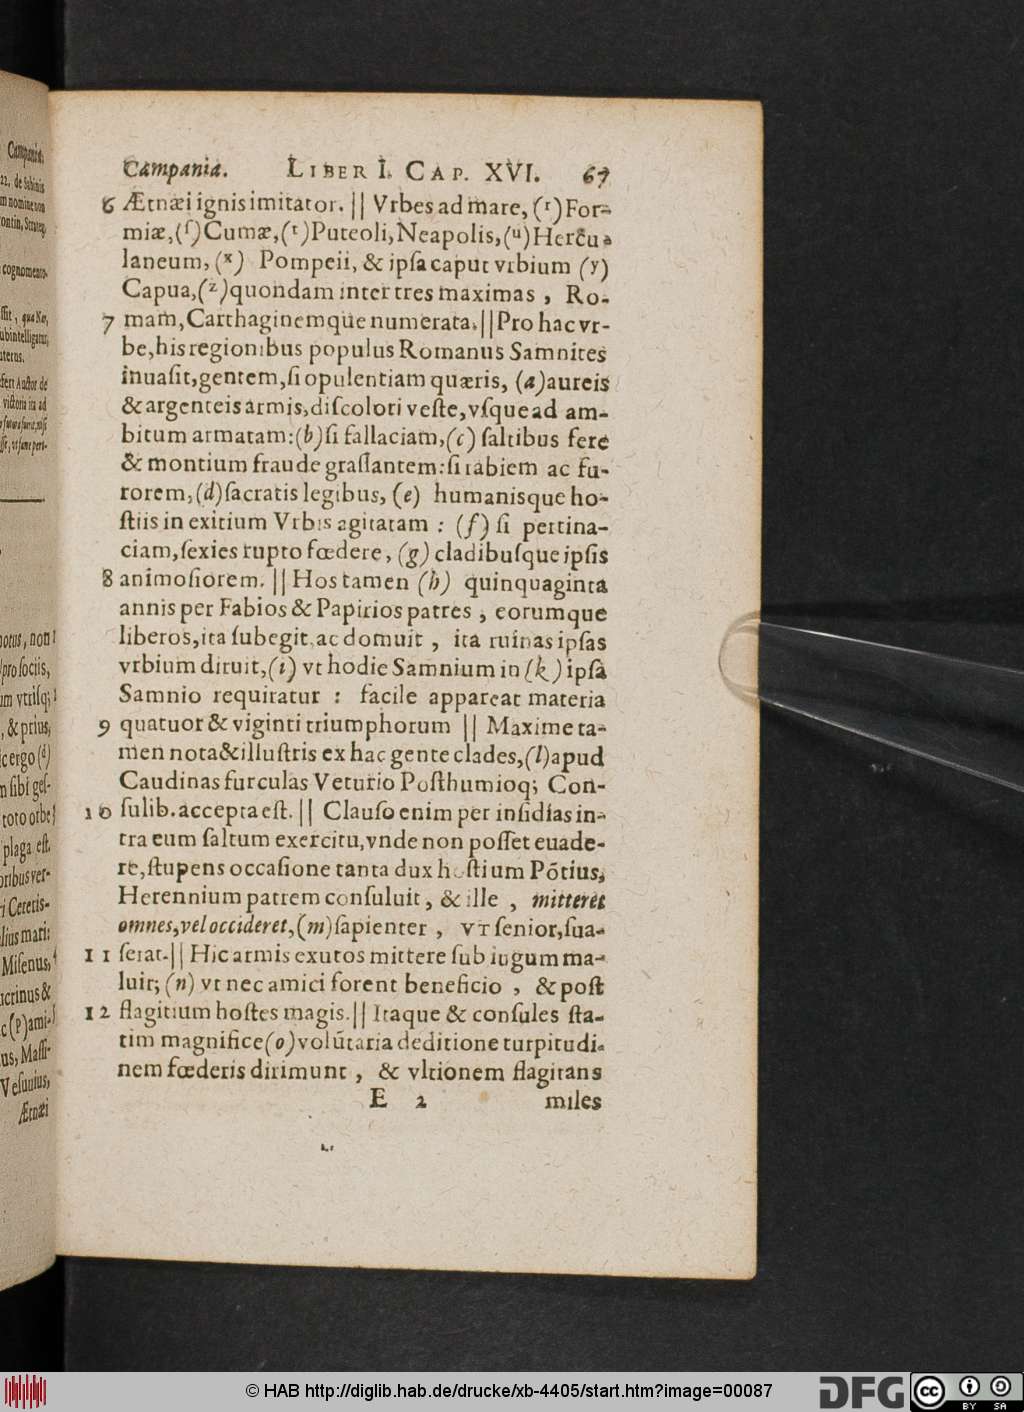 Campania. LIBER I. CAP. XVI. 67
6 Ætnæi ignis imitator. || Vrbes ad mare, (r) For-
miæ, (ſ) Cumæ, (t) Puteoli, Neapolis, (u) Hercu-
laneum, (x) Pompeii, & ipſa caput vrbium (y)
Capua, (z) quondam inter tres maximas, Ro-
7 mam, Carthaginemque numerata. || Pro hac vr-
be, his regionibus populus Romanus Samnites
inuaſit, gentem, ſi opulentiam quæris, (a) aureis
& argenteis armis, diſcolori veſte, vſque ad am-
bitum armatam: (b) ſi fallaciam, (c) ſaltibus fere
& montium fraude graſſantem: ſi rabiem ac fu-
rorem, (d) ſacratis legibus, (e) humanisque ho-
ſtiis in exitium Vrbis agitatam: (f) ſi pertina-
ciam, ſexies rupto fœdere, (g) cladibuſque ipſis
8 animoſiorem. || Hos tamen (h) quinquaginta
annis per Fabios & Papirios patres, eorumque
liberos, ita ſubegit ac domuit, ita ruinas ipſas
vrbium diruit, (i) vt hodie Samnium in (k) ipſa
Samnio requiratur: facile appareat materia
9 quatuor & viginti triumphorum || Maxime ta-
men nota & illuſtris ex hac gente clades, (l) apud
Caudinas furculas Veturio Poſthumioq; Con-
10 ſulib. accepta eſt. || Clauſo enim per inſidias in-
tra eum ſaltum exercitu, vnde non poſſet euade-
re, ſtupens occaſione tanta dux hoſtium Põtius,
Herennium patrem conſuluit, & ille, mitteret
omnes, vel occideret, (m) ſapienter, VT ſenior, ſua-
11 ſerat. || Hic armis exutos mittere ſub iugum ma-
luit; (n) vt nec amici forent beneficio, & poſt
12 flagitium hoſtes magis. || Itaque & conſules ſta-
tim magnifice (o) volũtaria deditione turpitudi-
nem fœderis dirimunt, & vltionem flagitans
E 2 miles
© HAB http://diglib.hab.de/drucke/xb-4405/start.htm?image=00087
DFG cc BY SA